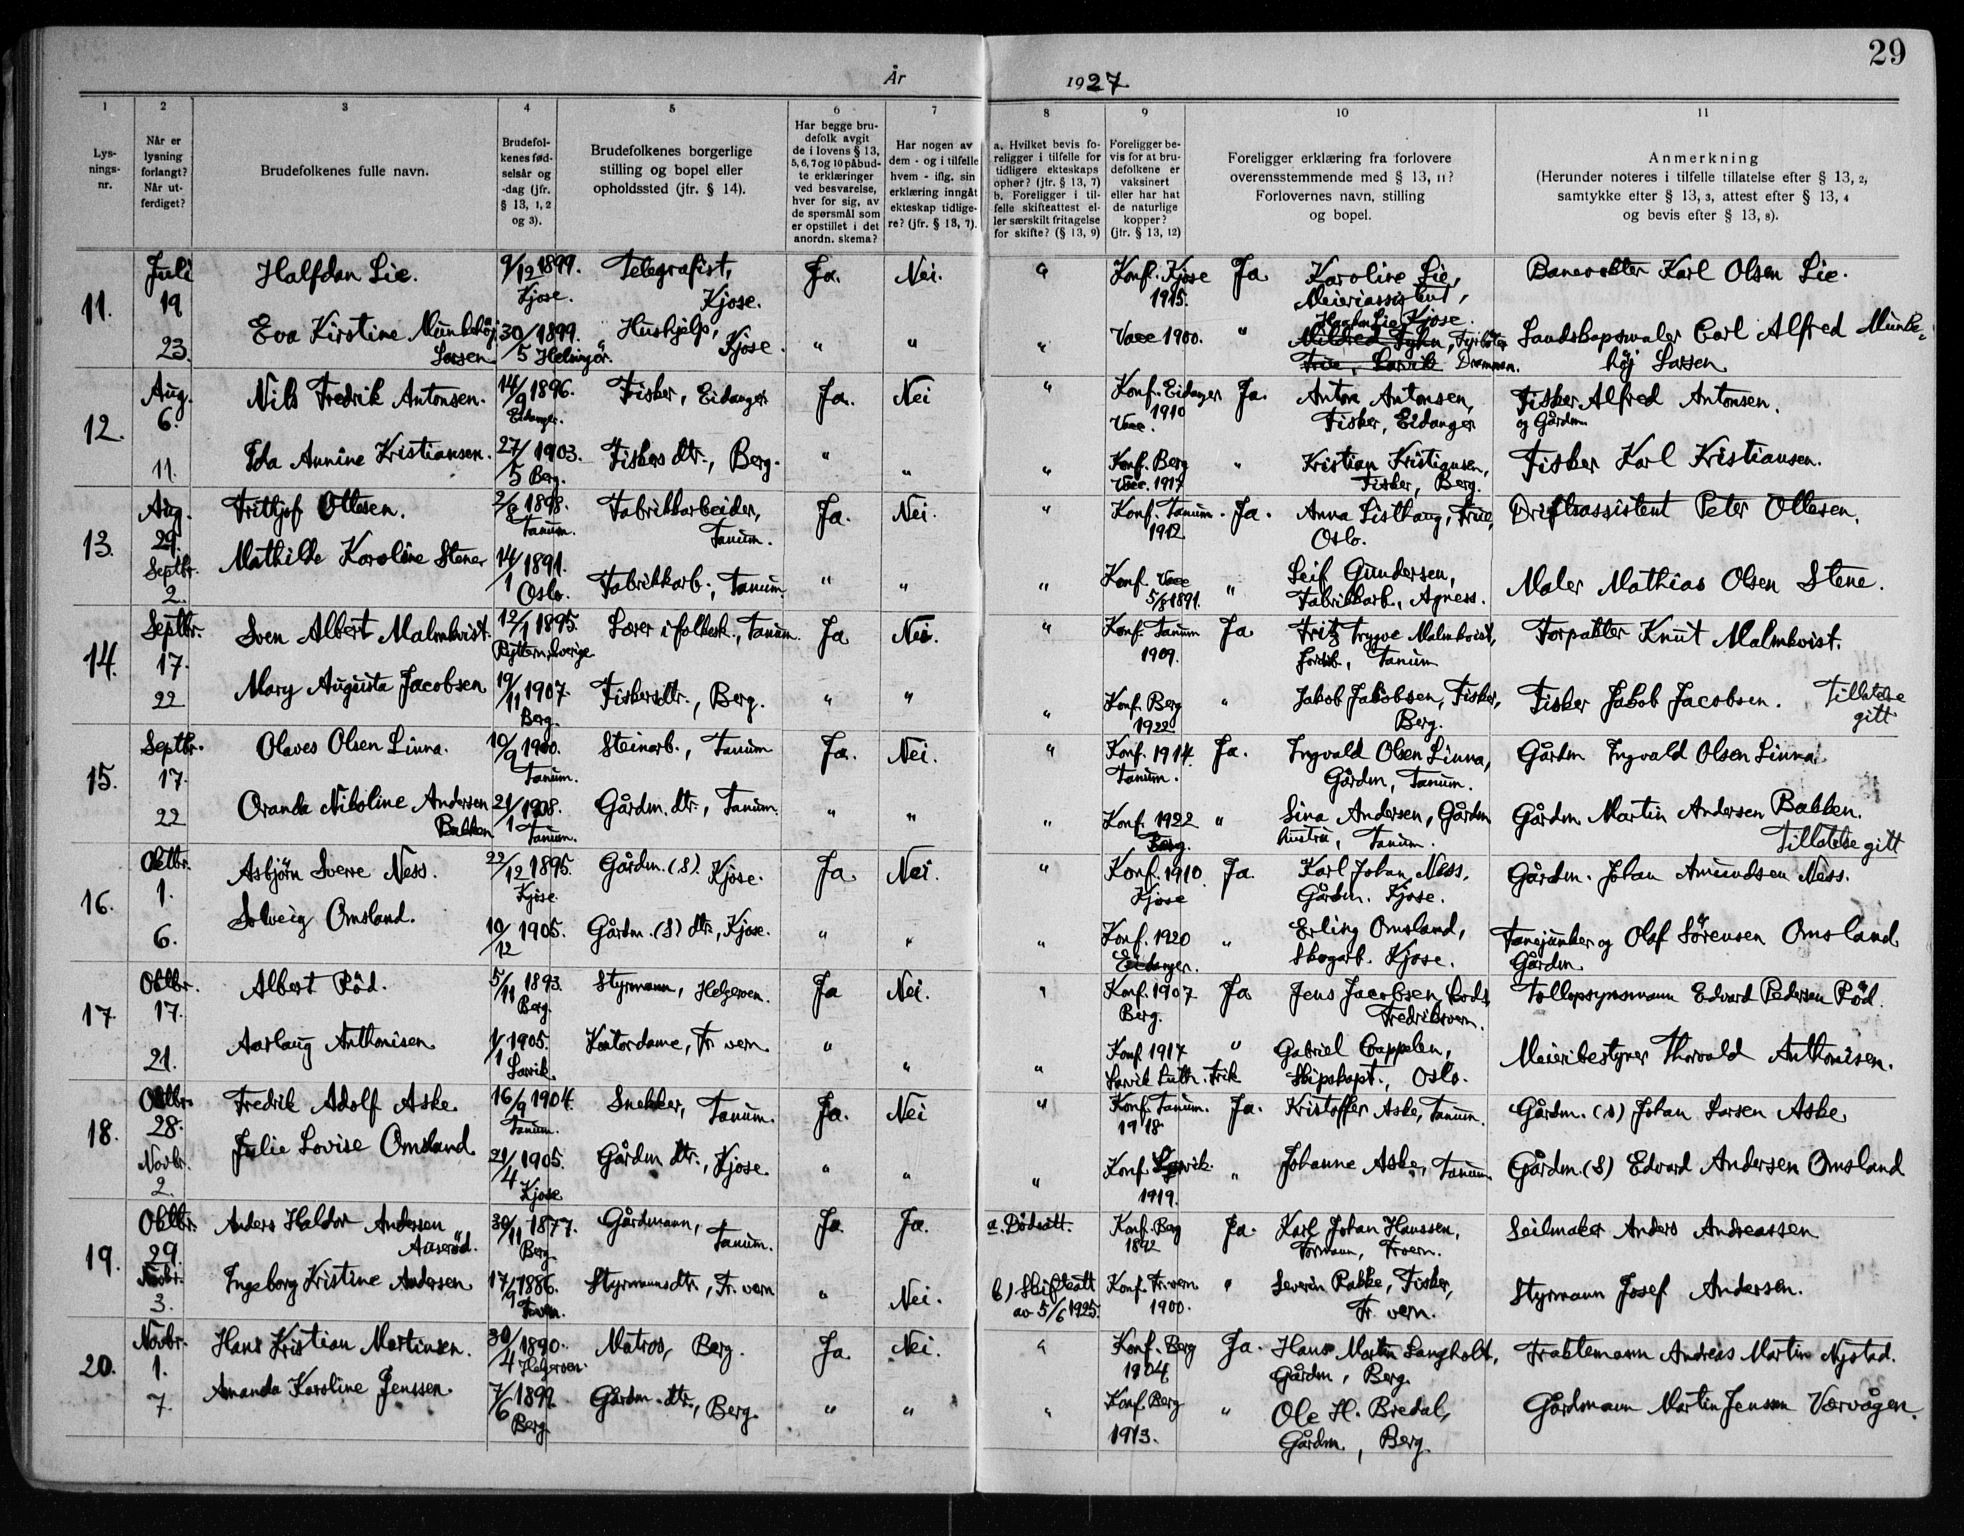 29
År 1927
1 2 3 4 5 6 7 8 9 10 11
Lysningsnr.
Når er lysning forlangt? Når utferdiget?
Brudefolkenes fulle navn.
Brudefolkenes fødselsår og -dag (jfr. § 13, 1, 2 og 3).
Brudefolkenes borgerlige stilling og bopel eller opholdssted (jfr. § 14).
Har begge brudefolk avgit de i lovens § 13, 5, 6, 7 og 10 påbudte erklæringer ved besvarelse, hver for sig, av de spørsmål som er opstillet i det anordn. skema?
Har nogen av dem - og i tilfelle hvem - iflg. sin erklæring inngåt ekteskap tidligere? (jfr. § 13, 7).
a. Hvilket bevis foreligger i tilfelle for tidligere ekteskaps ophør? (jfr. § 13, 7) b. Foreligger i tilfelle skifteattest eller særskilt fritagelse for skifte? (§ 13, 9)
Foreligger bevis for at brudefolkene er vaksinert eller har hat de naturlige kopper? (jfr. § 13, 12)
Foreligger erklæring fra forlovere overensstemmende med § 13, 11? Forlovernes navn, stilling og bopel.
Anmerkning (Herunder noteres i tilfelle tillatelse efter § 13, 2, samtykke efter § 13, 3, attest efter § 13, 4 og bevis efter § 13, 8).
11. Juli 19 Halfdan Lie. 9/12 1899. Kjose. Telegrafist, Kjose. Ja. Nei. " Konf. Kjose 1915. Ja Karoline Lie, Meieriassistent, Kjose. Banevokter Karl Olsen Lie.
23. Eva Kirstine Munkehöj Larsen 30/5 1899. Helsingör. Hushjelp, Kjose. " " " Vacc 1900. " Mildred Frue, Larvik Drammen. Landskapsmaler Carl Alfred Munkehöj Larsen
12. Aug. 6. Nils Fredrik Antonsen. 14/9 1896. Eidanger. Fisker, Eidanger Ja. Nei " Konf. Eidanger 1910 Vacc. Ja. Anton Antonsen, Fisker, Eidanger Fisker Alfred Antonsen. og Gårdm.
11. Ida Annine Kristiansen. 27/5 1903. Berg. Fiskers dtr., Berg. " " " Konf. Berg Vacc. 1917 " Kristian Kristiansen, Fisker, Berg. Fisker Karl Kristiansen.
13. Aug. 29. Frithjof Ottesen. 1898. Tanum. Fabrikkarbeider, Tanum. Ja. Nei. " Konf. Tanum. 1912 Ja. Anna Listhaug, Frue, Oslo. Driftsassistent Peter Ottesen.
Septbr. 2. Mathilde Karoline Stene 14/1 1891. Oslo. Fabrikkarb., Tanum. " " " Konf. Vacc 5/8 1891. " Leif Gundersen, Fabrikkarb., Agness. Maler Mathias Olsen Stene.
14. Septbr. 17. Sven Albert Malmkvist. 12/1 1895. Ryttern, Sverige Lærer i folkesk., Tanum. Ja Nei. " Konf. Tanum 1909. Ja Fritz Trygve Malmkvist, Tanum Forpakter Knut Malmkvist.
22 Mary Augusta Jacobsen 19/11 1907. Berg. Fiskersdtr., Berg. " " " Konf. Berg 1922 " Jakob Jakobsen, Fisker, Berg. Fisker Jakob Jacobsen. Tillatelse gitt
15. Septbr. 17. Olaves Olsen Linna. 10/9 1900. Tanum. Steinarb., Tanum Ja. Nei. " Konf. 1914. Tanum. Ja. Ingvald Olsen Linna, Gårdm, Tanum. Gårdm Ingvald Olsen Linna.
22 Oranda Nikoline Andersen Bakken 21/1 1908. Tanum. Gårdm. dtr., Tanum. " " " Konf. 1922 Berg. " Lina Andersen, Gårdm hustru, Tanum. Gårdm Martin Andersen Bakken. Tillatelse gitt
16. Oktbr. 1. Asbjörn Sverre Ness. 22/12 1895. Kjose Gårdm. (S). Kjose. Ja Nei. " Konf. 1910. Kjose Ja. Karl Johan Ness, Gårdm. Kjose. Gårdm. Johan Amundsen Ness.
6. Solveig Omsland. 10/12 1905. Gårdm. (S) dtr., Kjose. " " " Konf. 1920 Eidanger. " Erling Omsland, Skogarb. Kjose. Fanejunker og Olaf Sörensen Omsland Gårdm.
17 Oktbr. 17. Albert Röd. 5/11 1893. Berg. Styrmann, Helgeroen. Ja Nei. " Konf. 1907 Berg. Ja Jens Jacobsen Lods, Fredriksvern. Tollopsynsmann Edvard Pedersen Röd.
21. Aaslaug Anthonisen 1/1 1905. Larvik. Kontordame, Fr. vern " " " Konf. 1917 Larvik Luth. Frik " Gabriel Cappelen, Skipskapt., Oslo. Meieribestyrer Thorvald Anthonisen.
18. Oktbr. 28. Fredrik Adolf Aske. 16/9 1904. Tanum. Snekker, Tanum. Ja. Nei " Konf. Tanum. 1918 Ja. Kristoffer Aske, Tanum. Gårdm. (s) Johan Larsen Aske
Novbr. 2. Julie Lovise Omsland 21/4 1905. Kjose Gårdm dtr., Kjose. " " " Konf. Larvik. 1919. " Johanne Aske, Tanum Gårdm. (S) Edvard Andersen Omsland
19. Oktbr. 29. Anders Haldor Andersen Auseröd. 30/11 1877. Berg Gårdmann, Tanum. Ja Ja. a. Dödsatt. Konf. Berg 1892 Ja. Karl Johan Hanssen, Formann, Fr vern. Seilmaker Anders Andreassen
Novbr. 3. Ingeborg Kristine Andersen 17/9 1886. Fr vern. Styrmannsdtr., Fr. vern " Nei. b) Skifteatt av 5/6 1925. Konf. Fr. vern 1900. " Severin Pakke, Fisker, Fr. vern. Styrmann Josef Andersen.
20. Novbr. 1. Hans Kristian Martinsen. 30/4 1890. Helgeroen. Matros, Berg. Ja Nei. " Konf. Berg 1904 Ja. Hans Martin Langholt, Gårdm, Berg. Fraktemann Andreas Martin Nystad.
7. Amanda Karoline Jenssen. 7/6 1899. Berg Gårdm. dtr., Berg. " " " Konf. Berg 1913. " Ole H. Bredal, Gårdm., Berg. Gårdmann Martin Jenssen Værvågen.